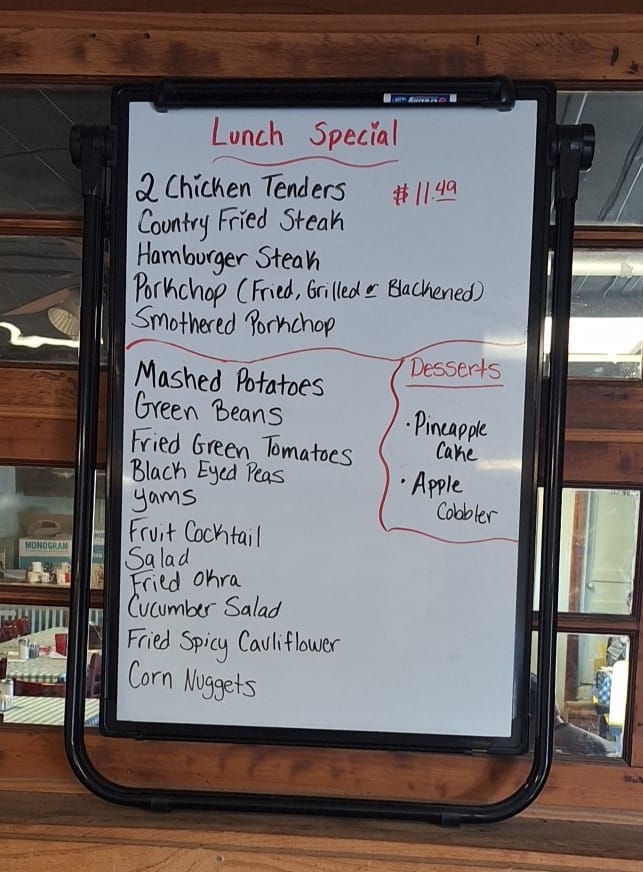 Lunch Special
2 Chicken Tenders $11.49
Country Fried Steak
Hamburger Steak
Porkchop (Fried, Grilled or Blackened)
Smothered Porkchop
Mashed Potatoes
Green Beans
Fried Green Tomatoes
Black Eyed Peas
yams
Fruit Cocktail
Salad
Fried Okra
Cucumber Salad
Fried Spicy Cauliflower
Corn Nuggets
Desserts
·Pineapple
Cake
·Apple
Cobbler
MONOGRAM